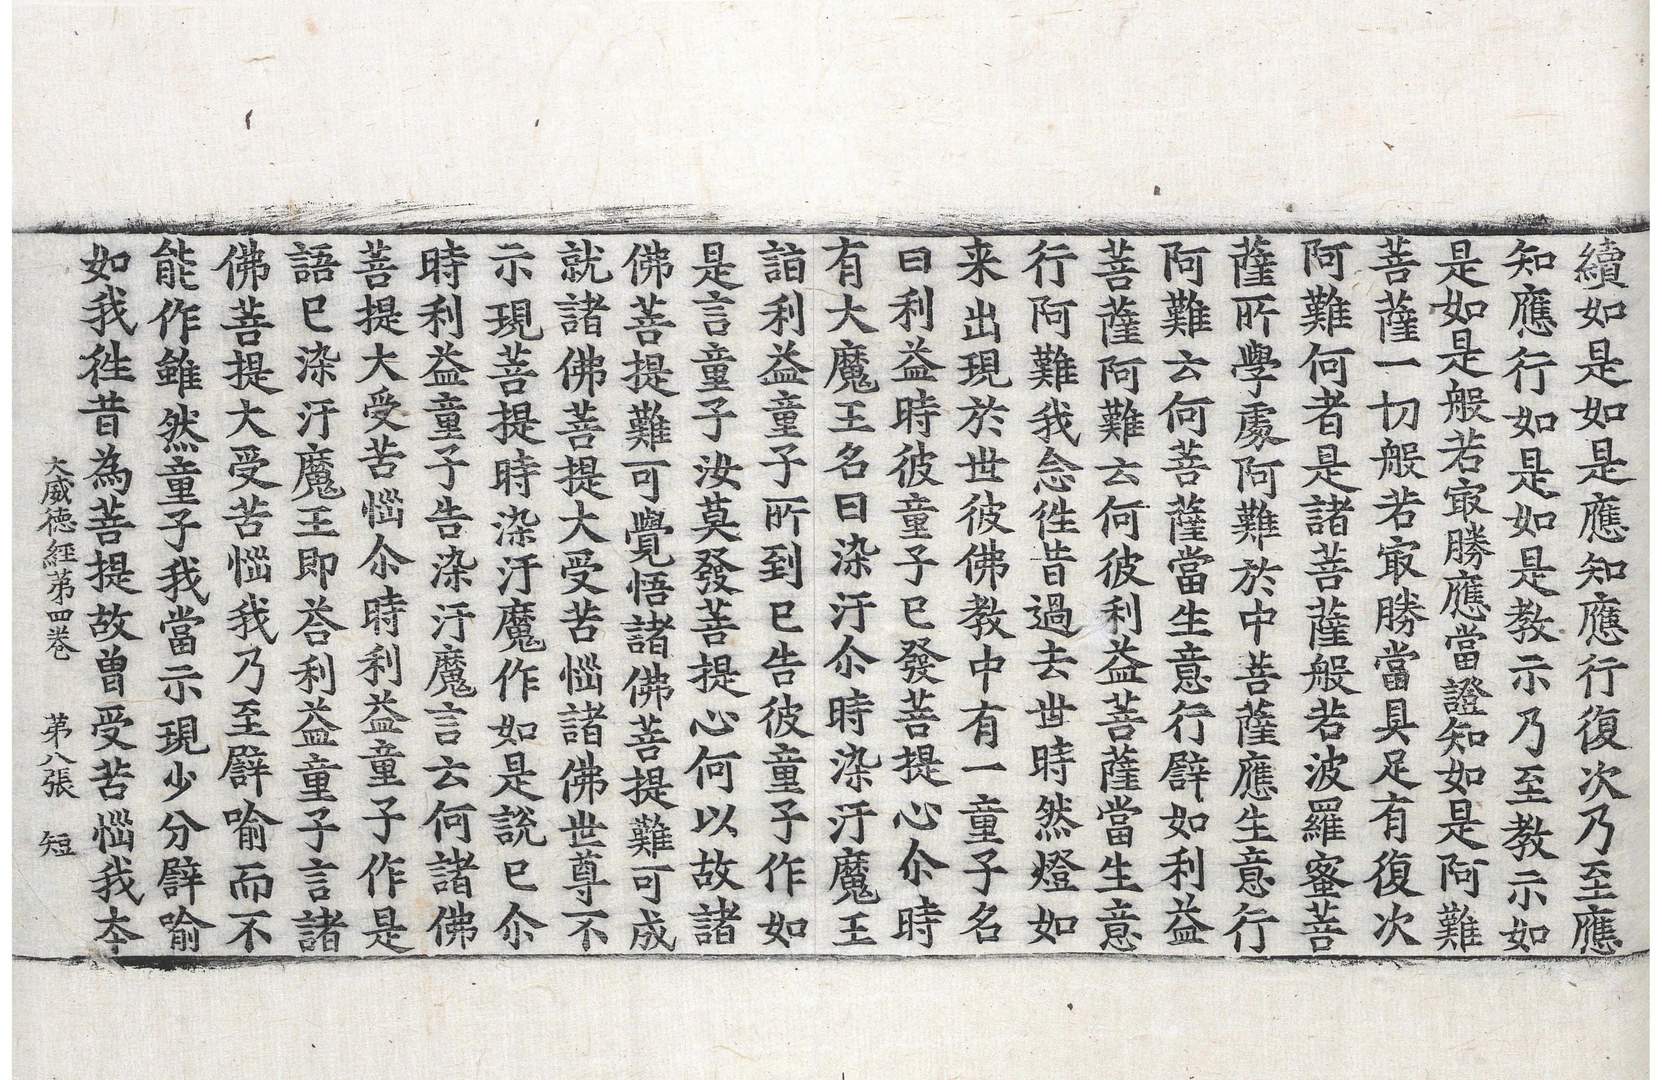 續如是如是應知應行復次乃至應
知應行如是如是教示乃至教示如
是如是般若㝡勝應當證知如是阿難
菩薩一切般若㝡勝當具足有復次
阿難何者是諸菩薩般若波羅蜜菩
薩所學處阿難於中菩薩應生意行
阿難云何菩薩當生意行譬如利益
菩薩阿難云何彼利益菩薩當生意
行阿難我念徃昔過去世時然燈如
来出現於世彼佛教中有一童子名
曰利益時彼童子已發菩提心尒時
有大魔王名曰染汙尒時染汙魔王
詣利益童子所到已告彼童子作如
是言童子汝莫發菩提心何以故諸
佛菩提難可覺悟諸佛菩提難可成
就諸佛菩提大受苦惱諸佛世尊不
示現菩提時染汙魔作如是說已尒
時利益童子告染汙魔言云何諸佛
菩提大受苦惱尒時利益童子作是
語已染汙魔王即荅利益童子言諸
佛菩提大受苦惱我乃至譬喻而不
能作雖然童子我當示現少分譬喻
如我徃昔為菩提故曾受苦惱我夲
大威德經第四卷 第八張 短